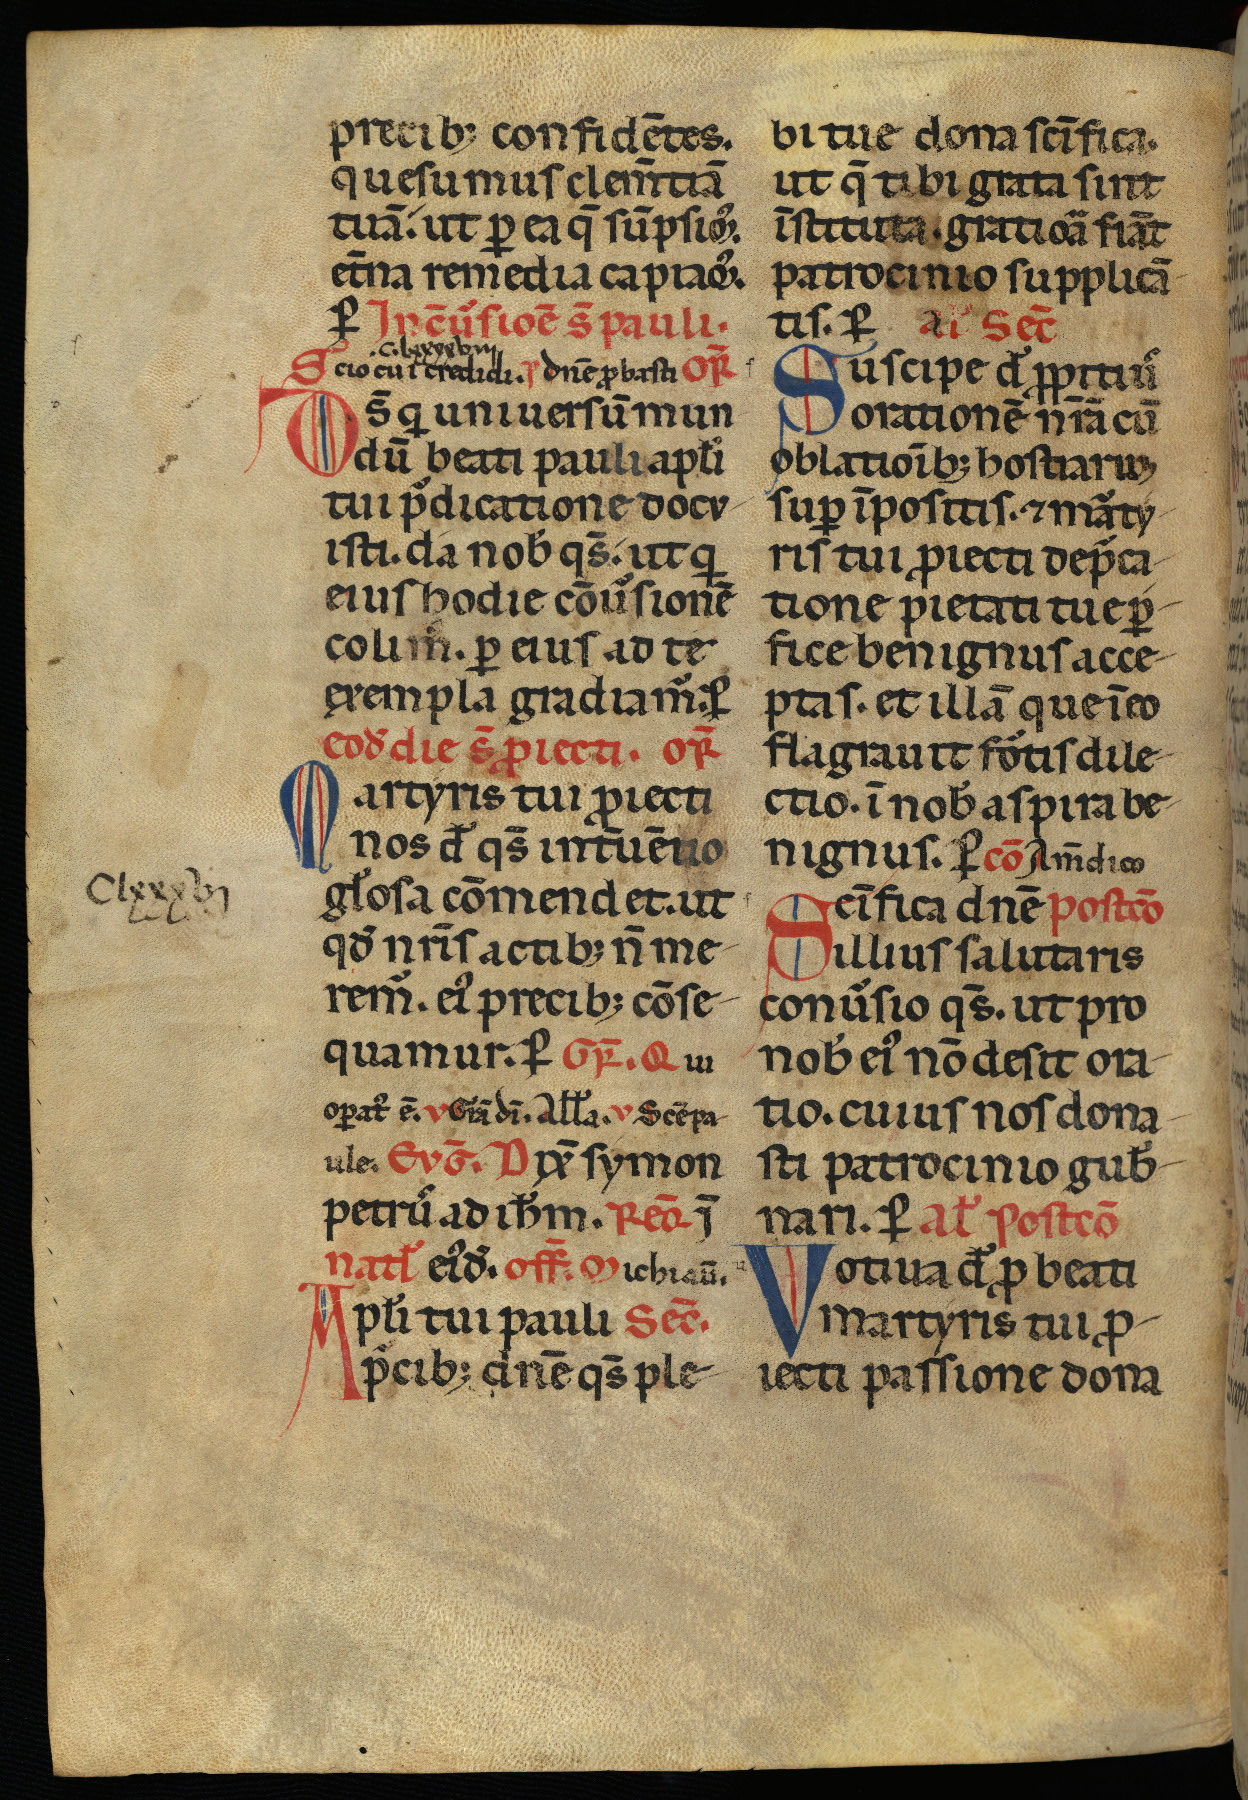 precib; confidētes.
quesumus clem̄tiā
tuā. ut ꝑ ea q̄ sūpsim᷒.
et̄na remedia capiam᷒.
ꝑ In cōu̾sioē s̄ pauli.
.c.lxxxviii
Scio cui credidi. p̄ dn̄e ꝓbasti Or̄
Ds̄ qi uniuersū mun
dū beati pauli apl̄i
tui p̾dicatione docu-
isti. da nob̄ qs̄. ut qi
eius hodie cōu̾sionē
colim̄. ꝑ eius ad te
exempla gradiam᷒. ꝑ
eod̄ die s̄ ꝓiecti. Or̄
Martyris tui ꝓiecti
nos d̄ qs̄ int̄uētio
Clxxxvi
gl̄osa cōmendet. ut
qd̄ nr̄is actib; n̄ me-
rem᷒. ei᷒ precib; cōse-
quamur. ꝑ Gr̄. Qui
oꝑat᷒ ē. v Grā di. All̄a. v Sc̄e pa-
ule. Evḡ. Dix̄ symon
petru᷒ ad ih̄m. Req̄ ī
natl̄ ei᷒d̄. off̄. Michi aū.
Apl̄i tui pauli Sec̄.
p̾cib; dn̄e qs̄ ple-
bi tue dona sc̄ifica.
ut q̄ tibi grata sunt
īstituta. gratiorā fiāt
patrocinio supplicā-
tis. ꝑ al̄ Sec̄
Suscipe d̄ ꝓpitiu᷒
orationē nr̄ā cū
oblatioīb; hostiarum
suꝑ īpositis. ⁊ mar̄ty-
ris tui ꝓiecti dep̾ca-
tione pietati tue ꝑ-
fice benignus acce-
ptas. et illā que ī eo
flagrauit fo̾tis dile-
ctio. ī nob̄ aspira be-
nignus. ꝑ cō Am̄ dico
Sc̄ifica dn̄e postcō
illius salutaris
conu̾sio qs̄. ut pro
nob̄ ei᷒ nō desit ora-
tio. cuius nos dona-
sti patrocinio gub̄-
nari. ꝑ Al̄ Postcō
Votiua d̄ ꝓ beati
martyris tui ꝓ-
iecti passione dona